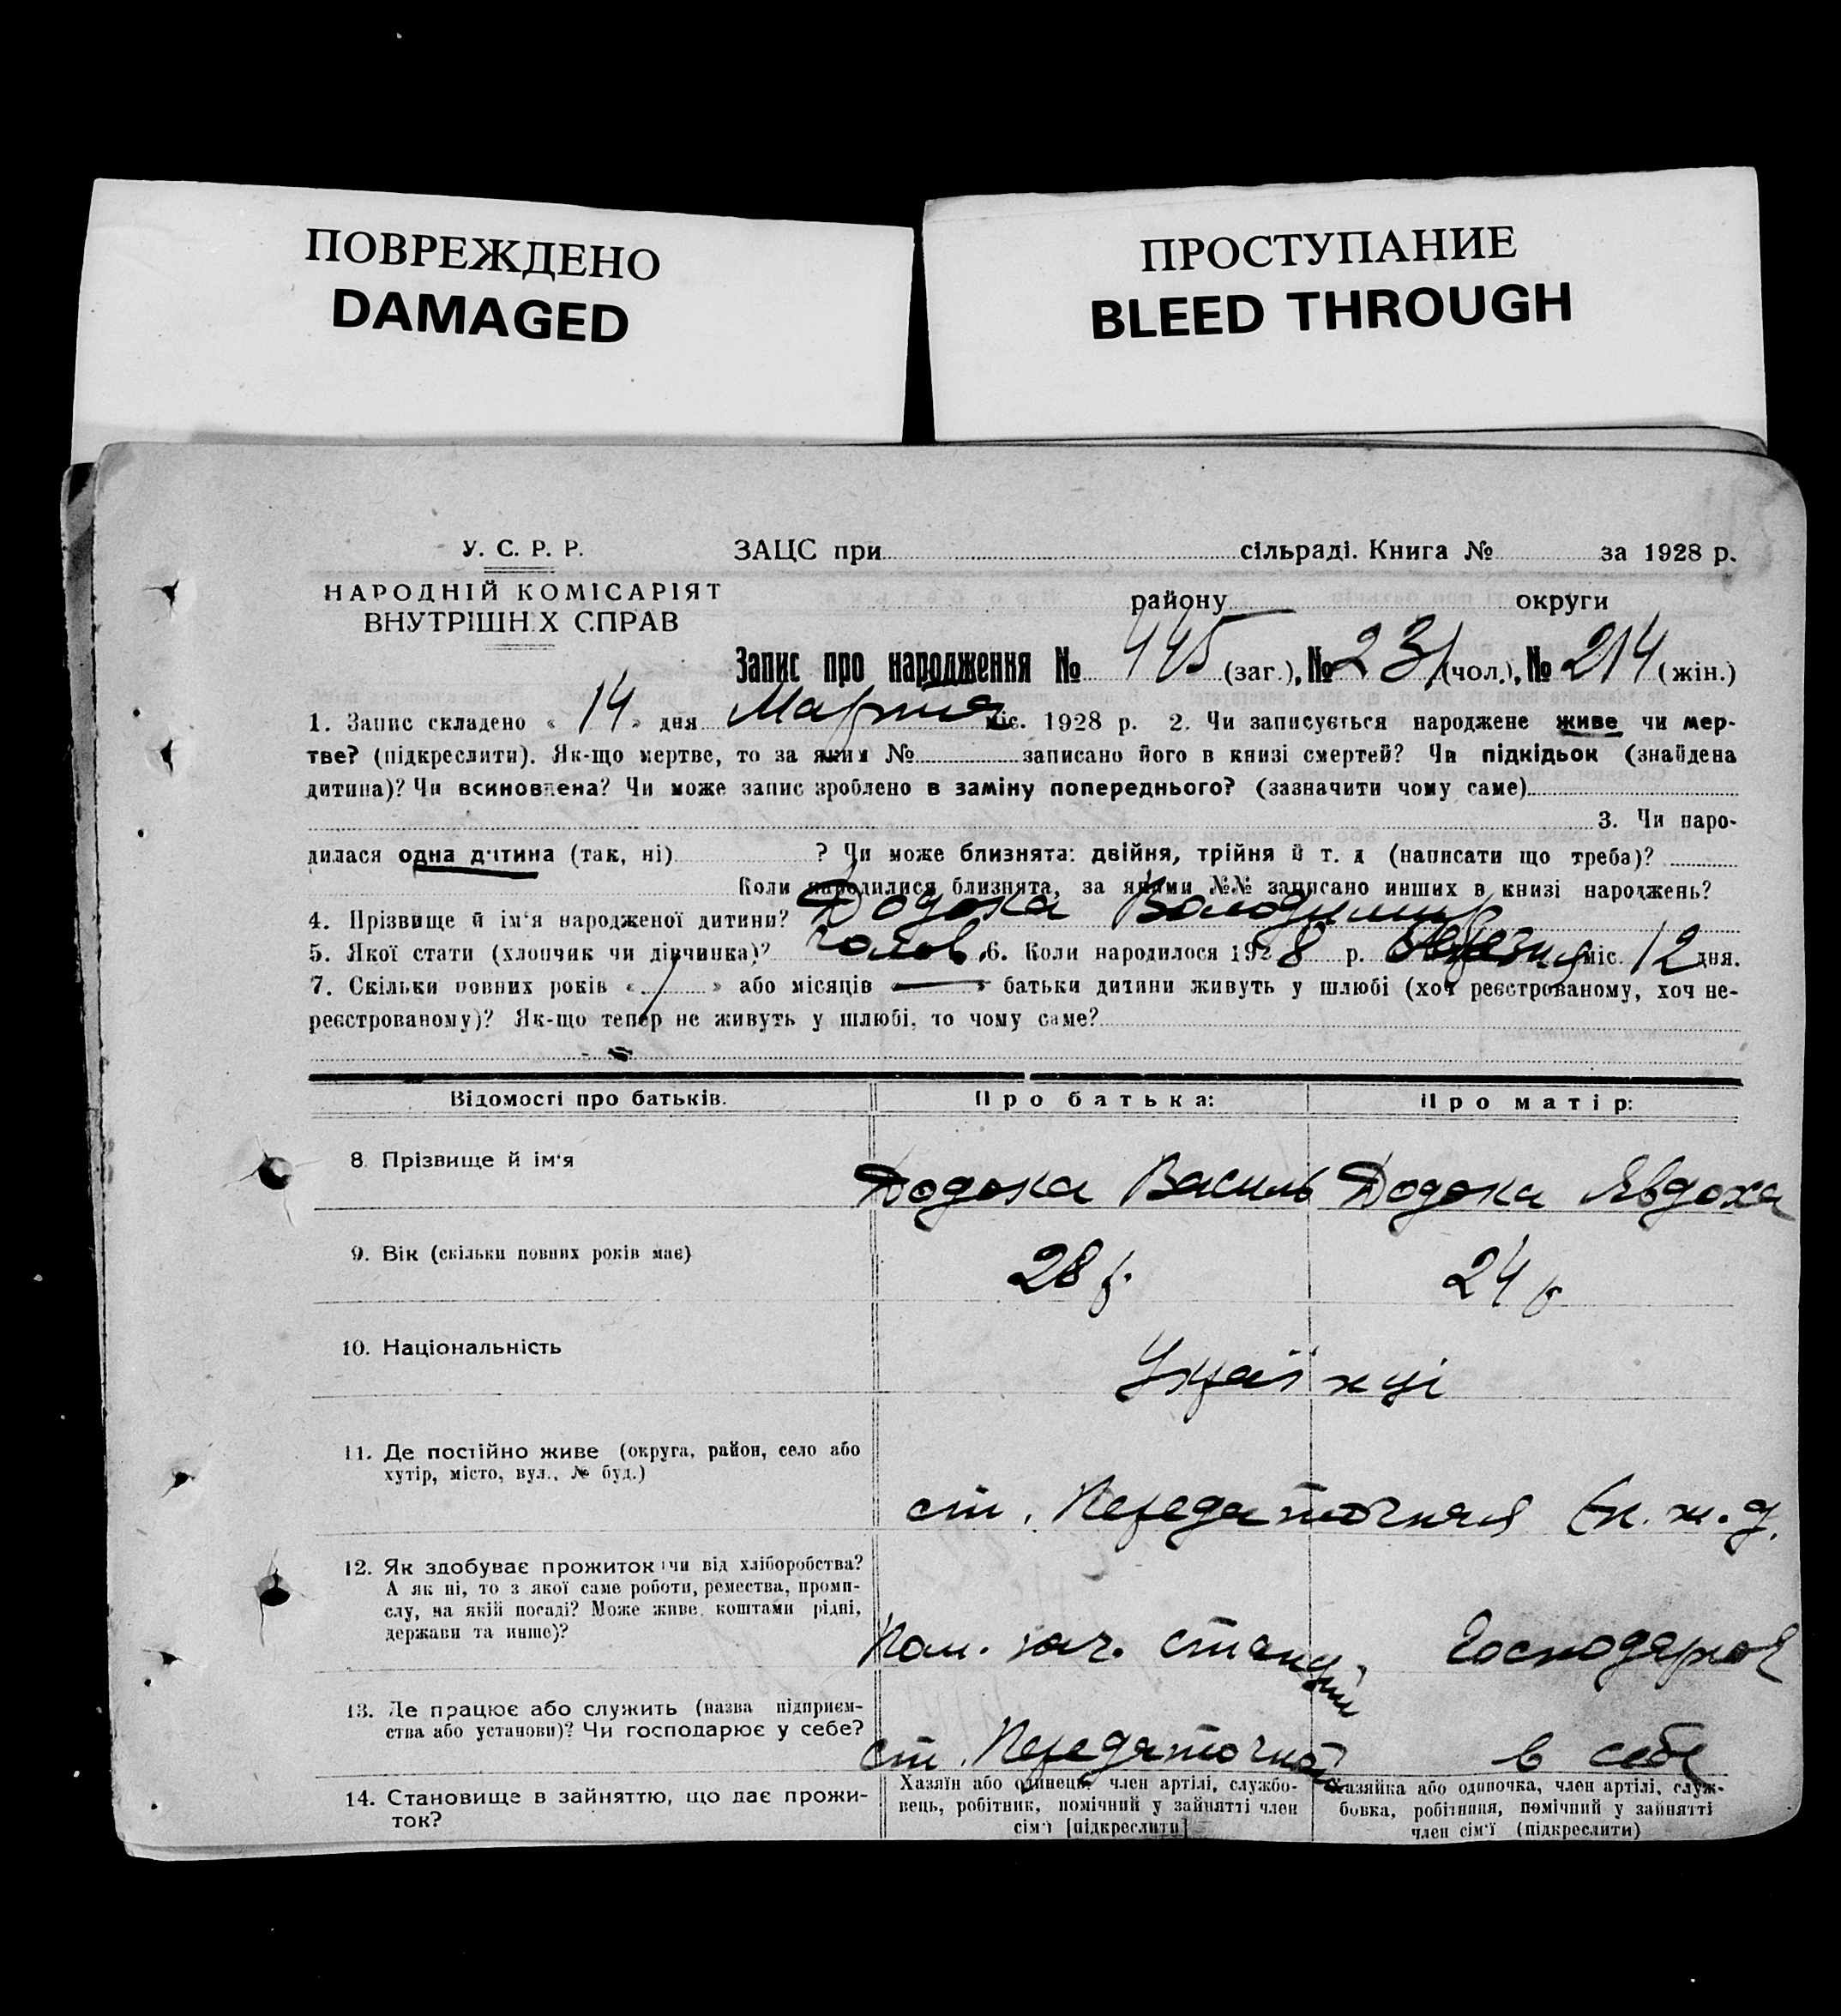 ПОВРЕЖДЕНО
DAMAGED
ПРОСТУПАНИЕ
BLEED THROUGH
У. С. Р. Р.
НАРОДНІЙ КОМІСАРІЯТ
ВНУТРІШНІХ СПРАВ
ЗАЦС при сільраді. Книга № за 1928 р.
району округи
Запис про народження № 445 (заг.), № 231 (чол.), № 214 (жін.)
1. Запис складено « 14 » дня Марта міс. 1928 р. 2. Чи записується народжене живе чи мер-
тве? (підкреслити). Як-що мертве, то за яким № записано його в книзі смертей? Чи підкідьок (знайдена
дитина)? Чи всиновлена? Чи може запис зроблено в заміну попереднього? (зазначити чому саме)
3. Чи наро-
дилася одна дитина (так, ні) ? Чи може близнята: двійня, трійня й т. д (написати що треба)?
Коли народилися близнята, за якими №№ записано инших в книзі народжень?
4. Прізвище й ім'я народженої дитини? Додока Володимир
5. Якої стати (хлопчик чи дівчинка)? чолов. 6. Коли народилося 1928 р. Березня міс. 12 дня.
7. Скільки повних років « 1 » або місяців « — » батьки дитини живуть у шлюбі (хоч реєстрованому, хоч не-
реєстрованому)? Як-що тепер не живуть у шлюбі, то чому саме?
Відомості про батьків. Про батька: Про матір:
8. Прізвище й ім'я Додока Василь Додока Явдоха
9. Вік (скільки повних років має) 28 р. 24 р
10. Національність Українці
11. Де постійно живе (округа, район, село або
хутір, місто, вул., № буд.)
ст. Передаточная Ек. ж. д.
12. Як здобуває прожиток чи від хліборобства?
А як ні, то з якої саме роботи, ремества, проми-
слу, на якій посаді? Може живе коштами рідні,
держави та инше)?
Пом. нач. станции Господарює
13. Де працює або служить (назва підприєм-
ства або установи)? Чи господарює у себе?
ст. Передаточной в себе
14. Становище в зайняттю, що дає прожи-
ток?
Хазяїн або одинець, член артілі, службо-
вець, робітник, помічний у зайнятті член
сім'ї [підкреслити]
Хазяйка або одиночка, член артілі, служ-
бовка, робітниця, помічний у зайнятті
член сім'ї (підкреслити)